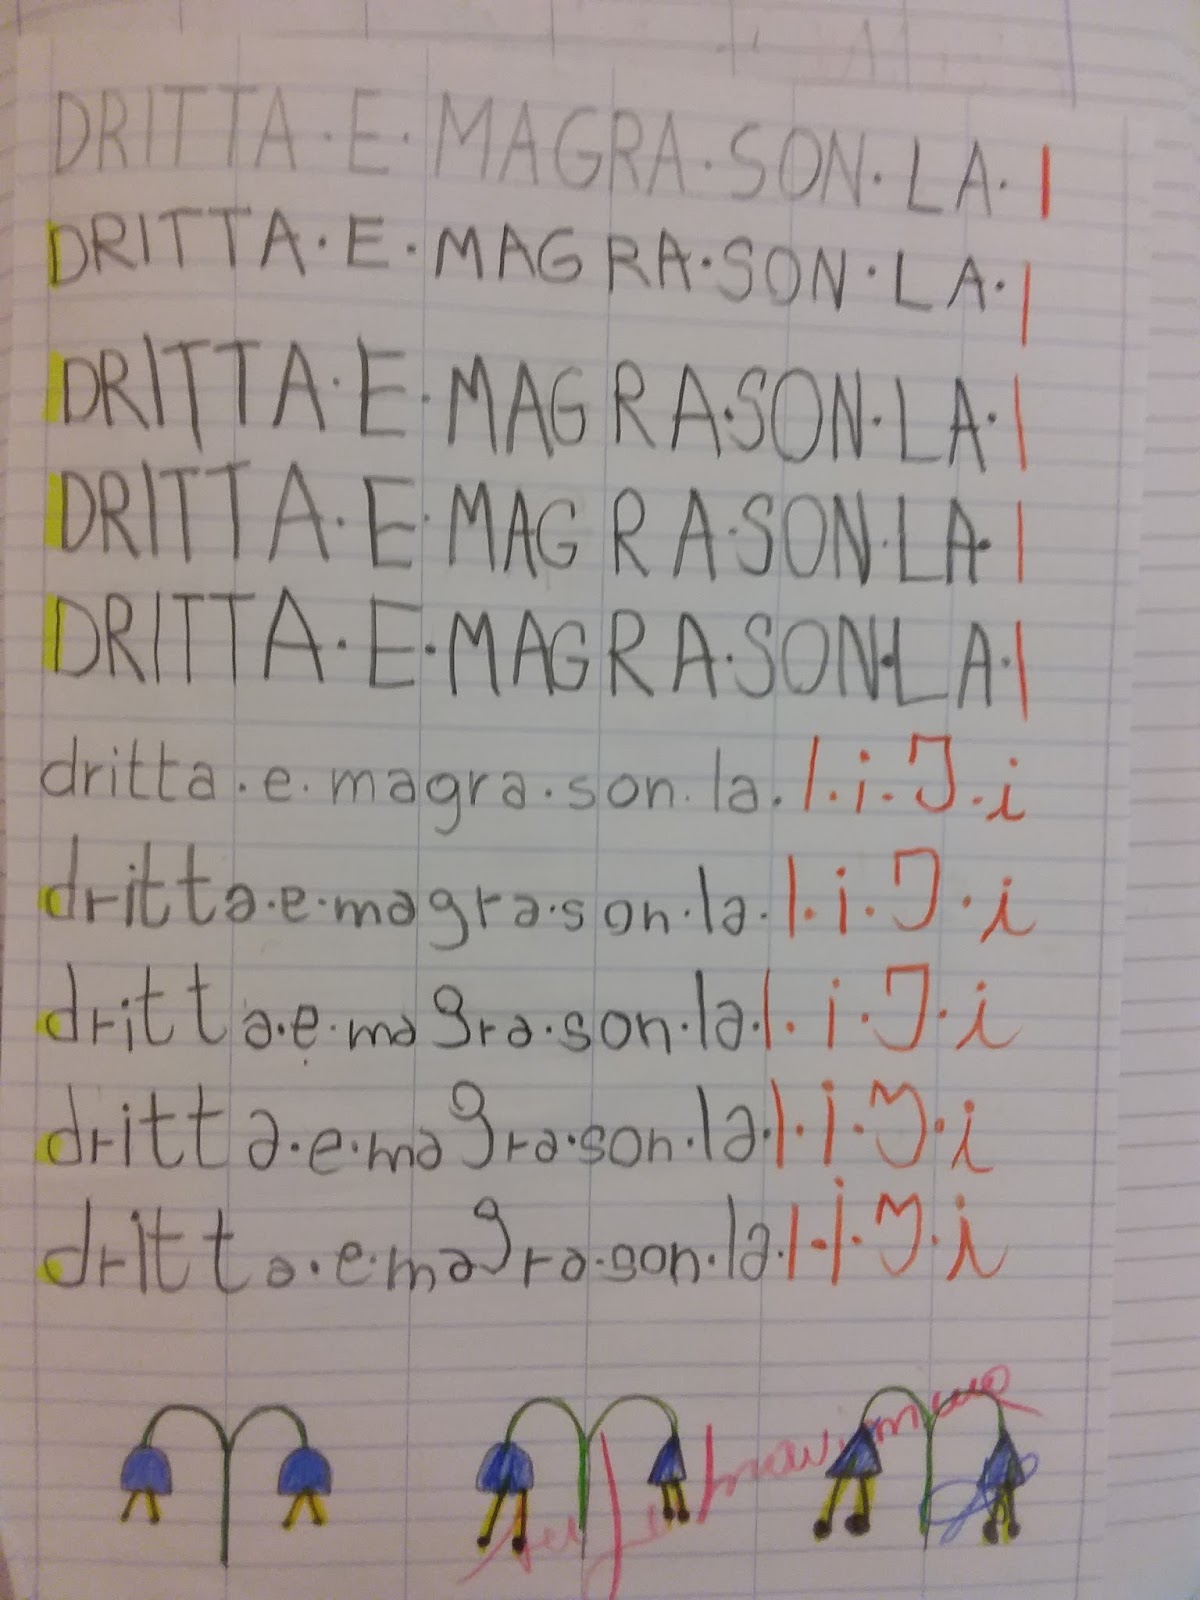 DRITTA·E·MAGRA·SON·LA·I
DRITTA·E·MAGRA·SON·LA·I
DRITTA·E·MAGRA·SON·LA·I
DRITTA·E·MAGRA·SON·LA·I
DRITTA·E·MAGRA·SON·LA·I
dritta·e·magra·son·la·I·i·I·i
dritta·e·magra·son·la·I·i·I·i
dritta·e·magra·son·la·I·i·I·i
dritta·e·magra·son·la·I·i·I·i
dritta·e·magra·son·la·I·i·I·i